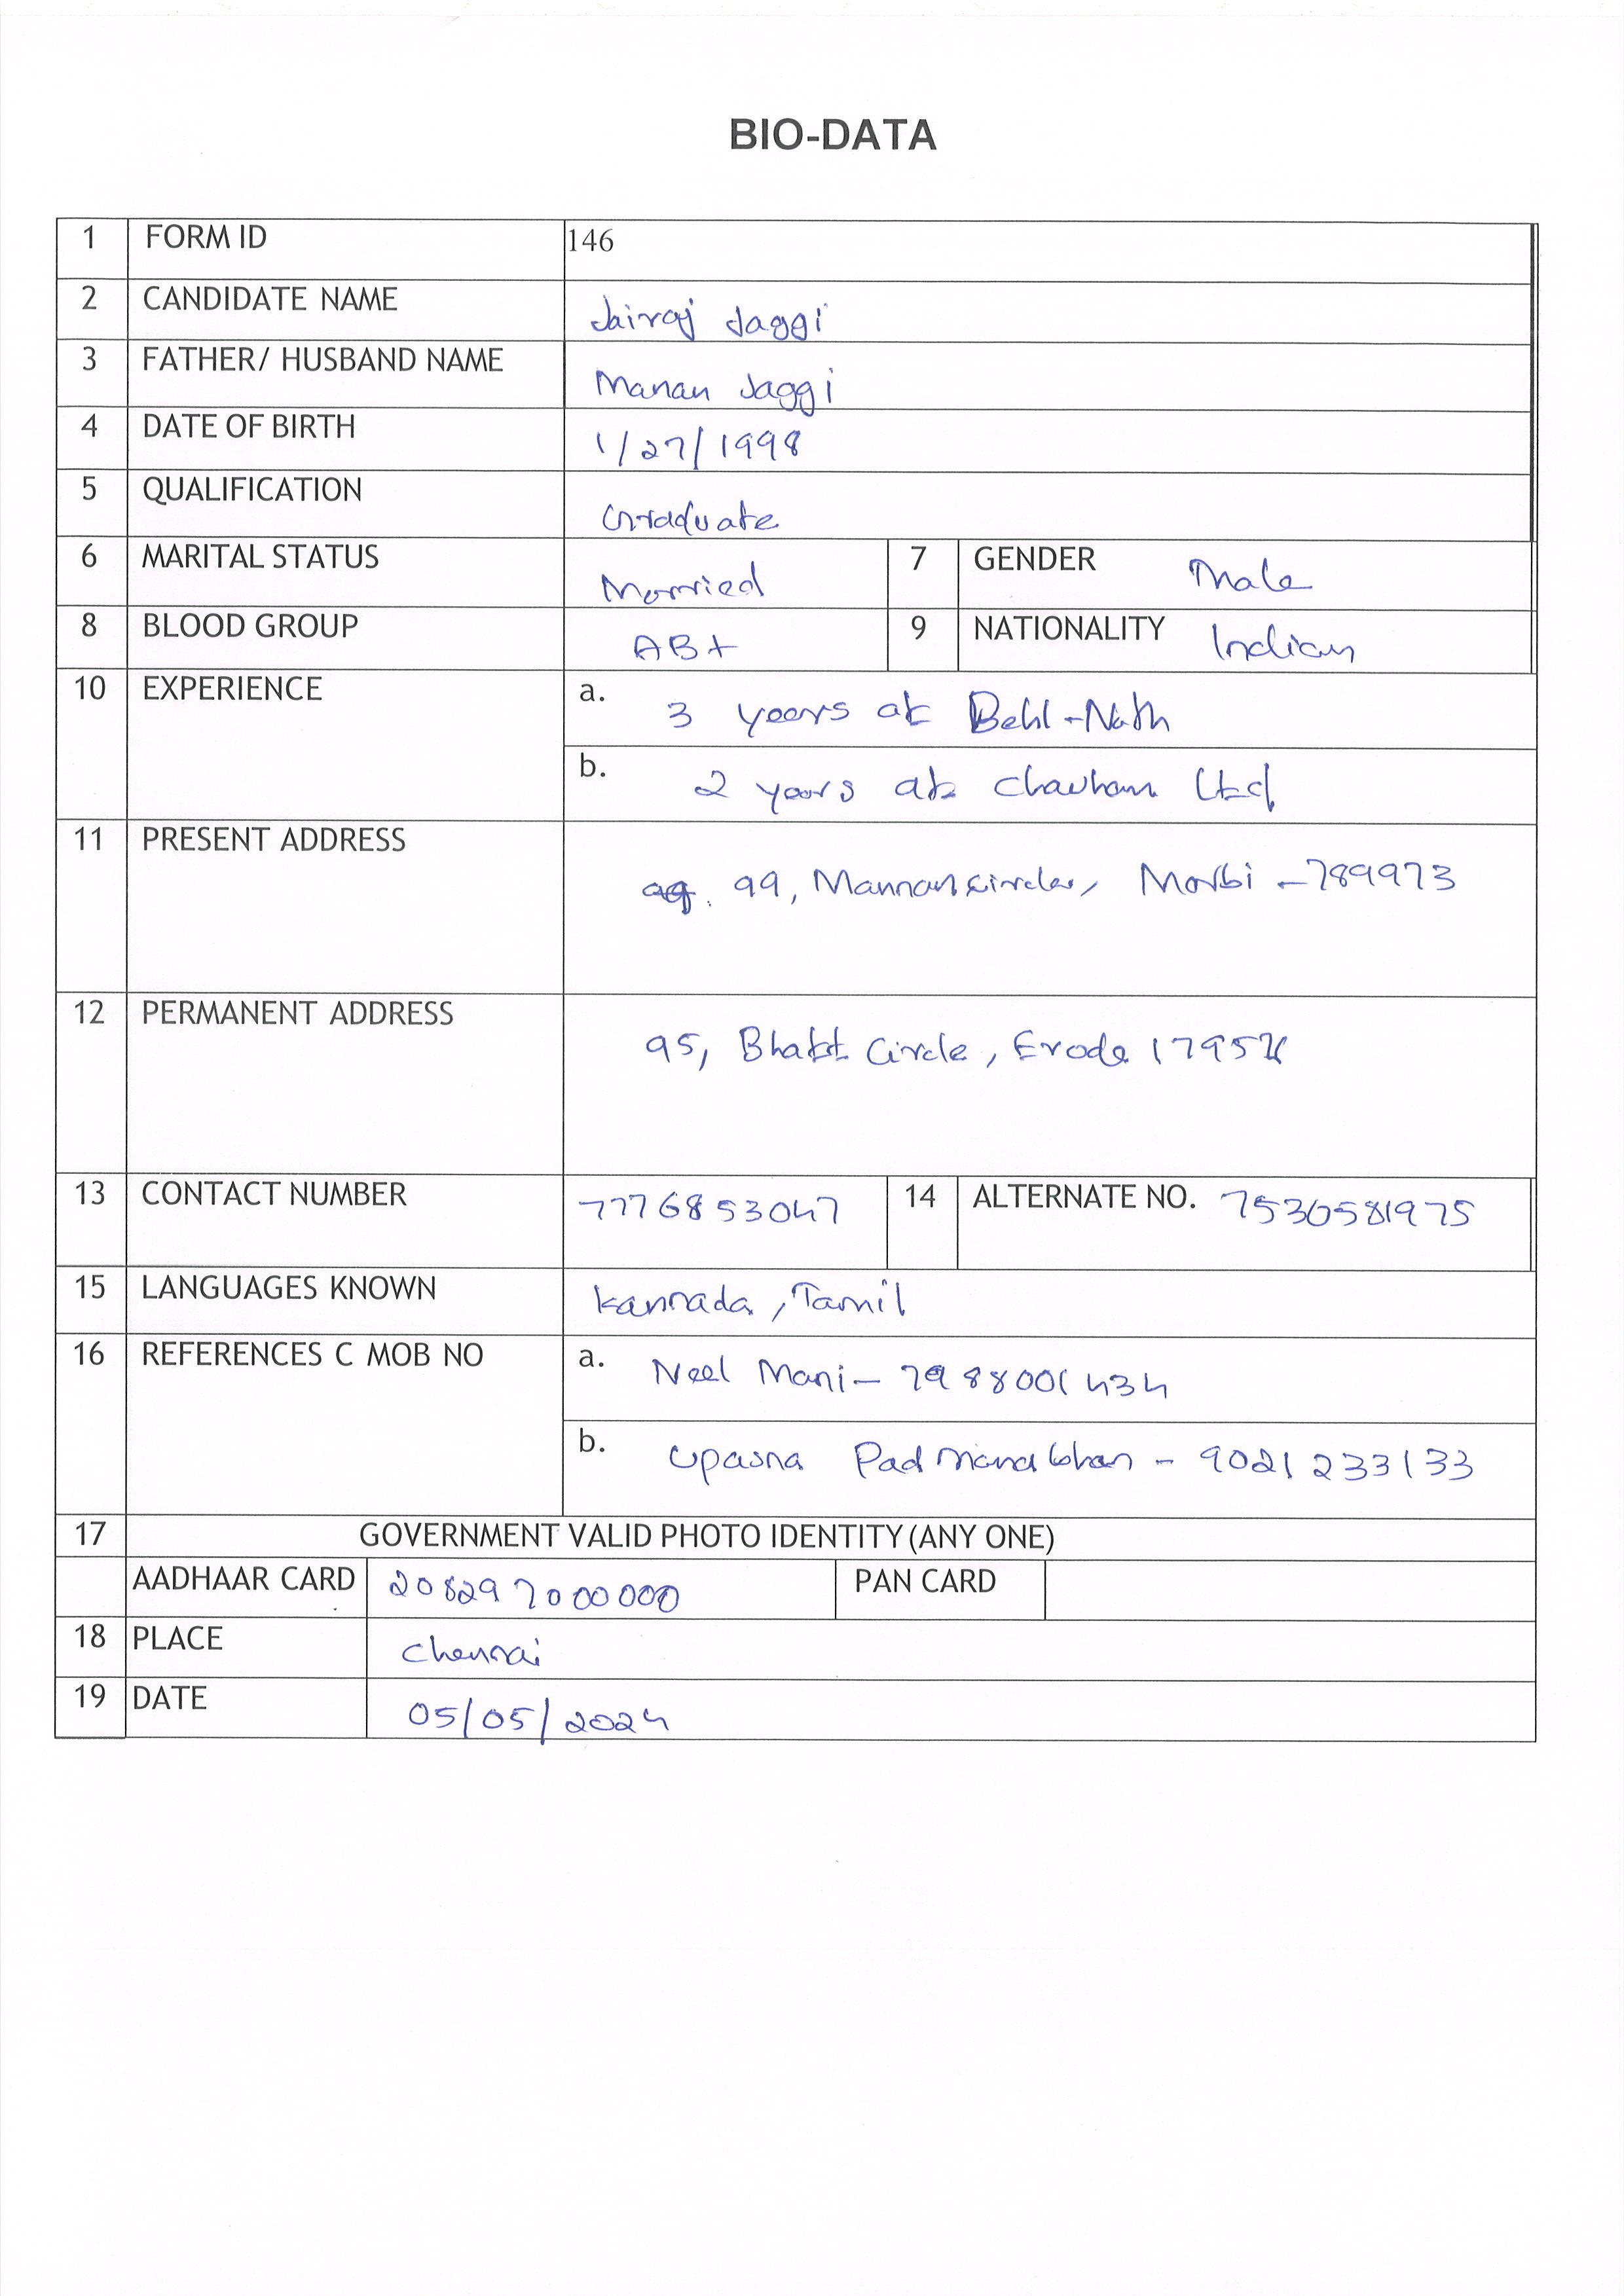 BIO-DATA
1 FORM ID 146
2 CANDIDATE NAME Jairaj Jaggi
3 FATHER/ HUSBAND NAME Manan Jaggi
4 DATE OF BIRTH 1/27/1998
5 QUALIFICATION Graduate
6 MARITAL STATUS Married 7 GENDER Male
8 BLOOD GROUP AB+ 9 NATIONALITY Indian
10 EXPERIENCE a. 3 years at Behl-Nath
b. 2 years at Chauhan Ltd
11 PRESENT ADDRESS 99, Mannan Circle, Morbi - 789973
12 PERMANENT ADDRESS 95, Bhakt Circle, Erode
13 CONTACT NUMBER 7776853047 14 ALTERNATE NO. 7530581975
15 LANGUAGES KNOWN Kannada, Tamil
16 REFERENCES C MOB NO a. Neel Mani - 7988001434
b. Upasna Padmanabhan - 9021233133
17 GOVERNMENT VALID PHOTO IDENTITY (ANY ONE)
AADHAAR CARD 208297000000 PAN CARD
18 PLACE Chennai
19 DATE 05/05/2024